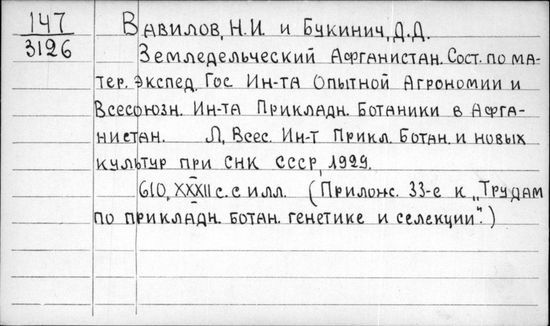 147
3126
Вавилов, Н.И. и Букинич, Д.Д.
Земледельческий Афганистан. Сост. по ма-
тер. Экспед. Гос. Ин-та Опытной Агрономии и
Всесоюзн. Ин-та Прикладн. Ботаники в Афга-
нистан. Л, Всес. Ин-т Прикл. Ботан. и новых
культур при СНК СССР, 1929.
610, XXXII с. с илл. (Прилож. 33-е к „Трудам
по прикладн. ботан. генетике и селекции".)